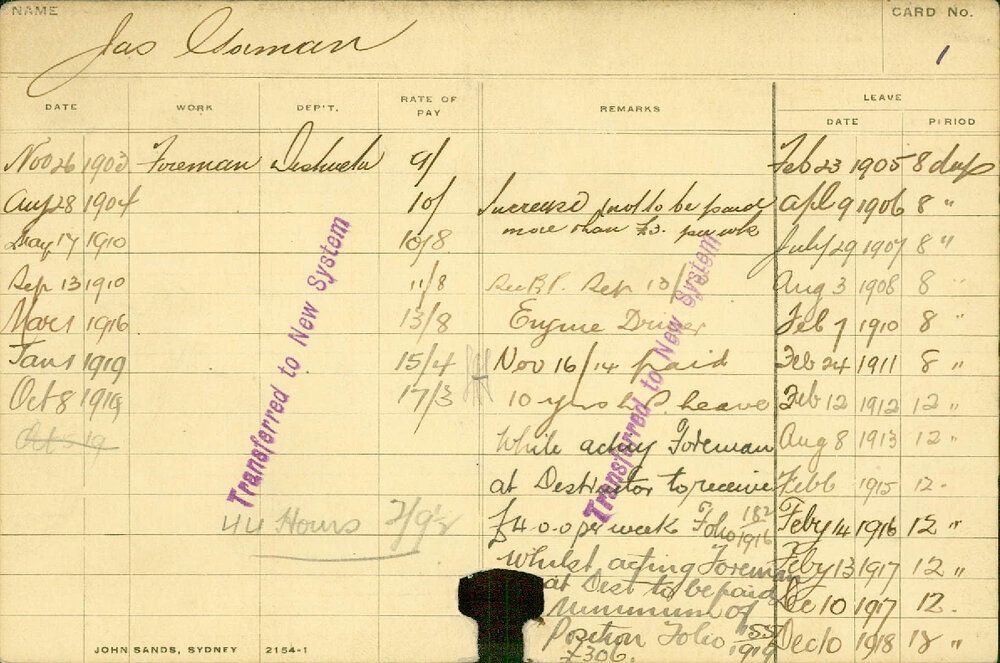 NAME
CARD No.
Jas
1
DATE WORK DEP'T. RATE OF PAY REMARKS LEAVE
DATE PERIOD
Nov 26 1903 Foreman 9/ Feb 23 1905 8 days
Aug 28 1904 10/ Increase not to be paid Apl 9 1906 8 "
more than £3. per wk
May 17 1910 10/8 July 29 1907 8 "
Sep 13 1910 11/8 Sep 13/ Aug 3 1908 8 "
Mar 1 1916 13/8 Engine Driver Feb 7 1910 8 "
Jan 1 1919 15/4 Nov 16/14 paid Feb 24 1911 8 "
Oct 8 1919 17/3 10 yrs Leave Feb 12 1912 12 "
Oct 8 19 While acting Foreman Aug 8 1913 12 "
at Destructor to receive Feb 6 1915 12 "
44 Hours 2/9½ £4.0.0 per week Folio 182/1916 Feby 14 1916 12 "
Whilst acting Foreman Feby 13 1917 12 "
at Dest to be paid Dec 10 1917 12 "
Minimum of
Position Folio 155/1919 Dec 10 1918 18 "
£306.
Transferred to New System
Transferred to New System
JOHN SANDS, SYDNEY 2154-1